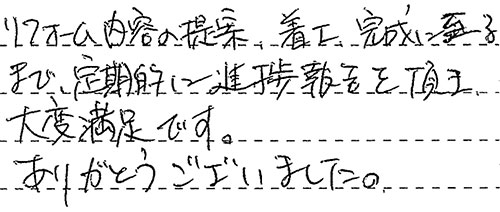 リフォーム内容の提案、着工、完成に至る
まで、定期的に進捗報告を頂き、
大変満足です。
ありがとうございました。